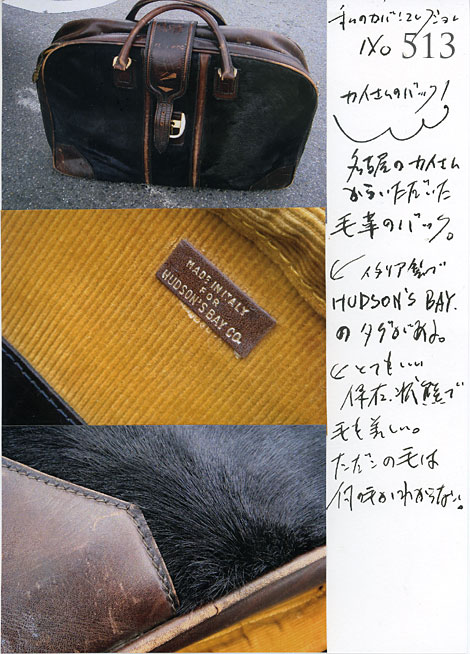 私のカバンコレクション
No 513
カイさんのバッグ!
名古屋のカイさん
からいただいた
毛革のバッグ。
イタリア製で
HUDSON'S BAY.
のタグがある。
とてもいい
保存状態で
毛も美しい。
ただこの毛は
何の毛かわからない。
MADE IN ITALY
FOR
HUDSON'S BAY CO.